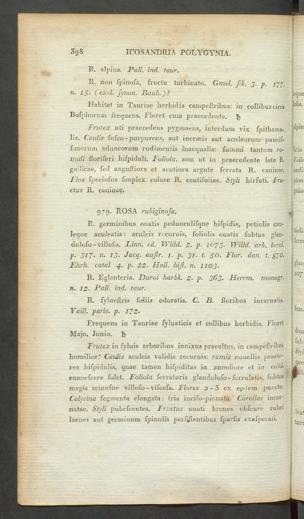 398 ICOSANDRIA POLYGYNIA.
R. alpina. Pall. ind. taur.
R. non spinosa, fructu turbinato. Gmel. sib. 3. p. 177.
n. 15. (excl. synon. Bauh.)?
Habitat in Tauriae herbidis campestribus: in collibus circa
Bosphorum frequens. Floret cum praecedente. ♄
Frutex uti praecedens pygmaeus, interdum vix spithama-
lis. Caulis fusco-purpureus, aut inermis aut aculeorum panci-
simorum aduncorum rudimentis inaequalis: summi tantum ra-
muli floriferi hispiduli. Foliola non ut in praecedente late R.
gallicae, sed angustiora et acutiora argute serrata R. caninae.
Flos speciosus simplex colore R. centifoliae. Styli hirsuti. Fru-
ctus R. caninae.
979. ROSA rubiginosa.
R. germinibus ovatis pedunculisque hispidis, petiolis cau-
leque aculeatis: aculeis recurvis, foliolis ovatis subtus glan-
duloso-villosis. Linn. ed. Willd. 2. p. 1073. Willd. arb. berol.
p. 317. n. 13. Jacq. austr. 1. p. 31. t. 50. Flor. dan. t. 870.
Ehrh. catel 4. p. 22. Hall. hist. n. 1103.
R. Eglanteria. Duroi harbk. 2. p. 363. Herrm. monogr.
n. 12. Pall. ind. taur.
R. sylvestris foliis odoratis. C. B. floribus incarnatis.
Vaill. paris. p. 172.
Frequens in Tauriae sylvaticis et collibus herbidis. Floret
Majo, Junio. ♄
Frutex in sylvis arboribus innixus praealtus, in campestribus
humilior? Caulis aculeis validis recurvis: ramis novellis praete-
rea hispidulis, quae tamen hispiditas in annosiore et in culta
evanescere solet. Foliola serraturis glanduloso-serrulatis, subtus
magis minusve villoso-viscosa. Flores 2-3 ex eodem puncto.
Calycina segmenta elongata: tria inciso-pinnata. Corollae incar-
natae. Styli pubescentes. Fructus ovati breves obscure rubri
laeves aut germinum spinulis persistentibus sparsis exasperati.